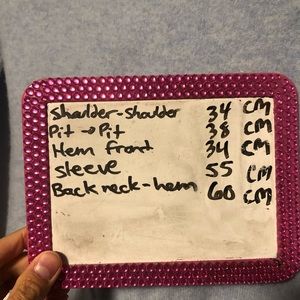 Shoulder-shoulder 34 CM
Pit → Pit 38 CM
Hem front 34 CM
Sleeve 55 CM
Back neck-hem 60 CM